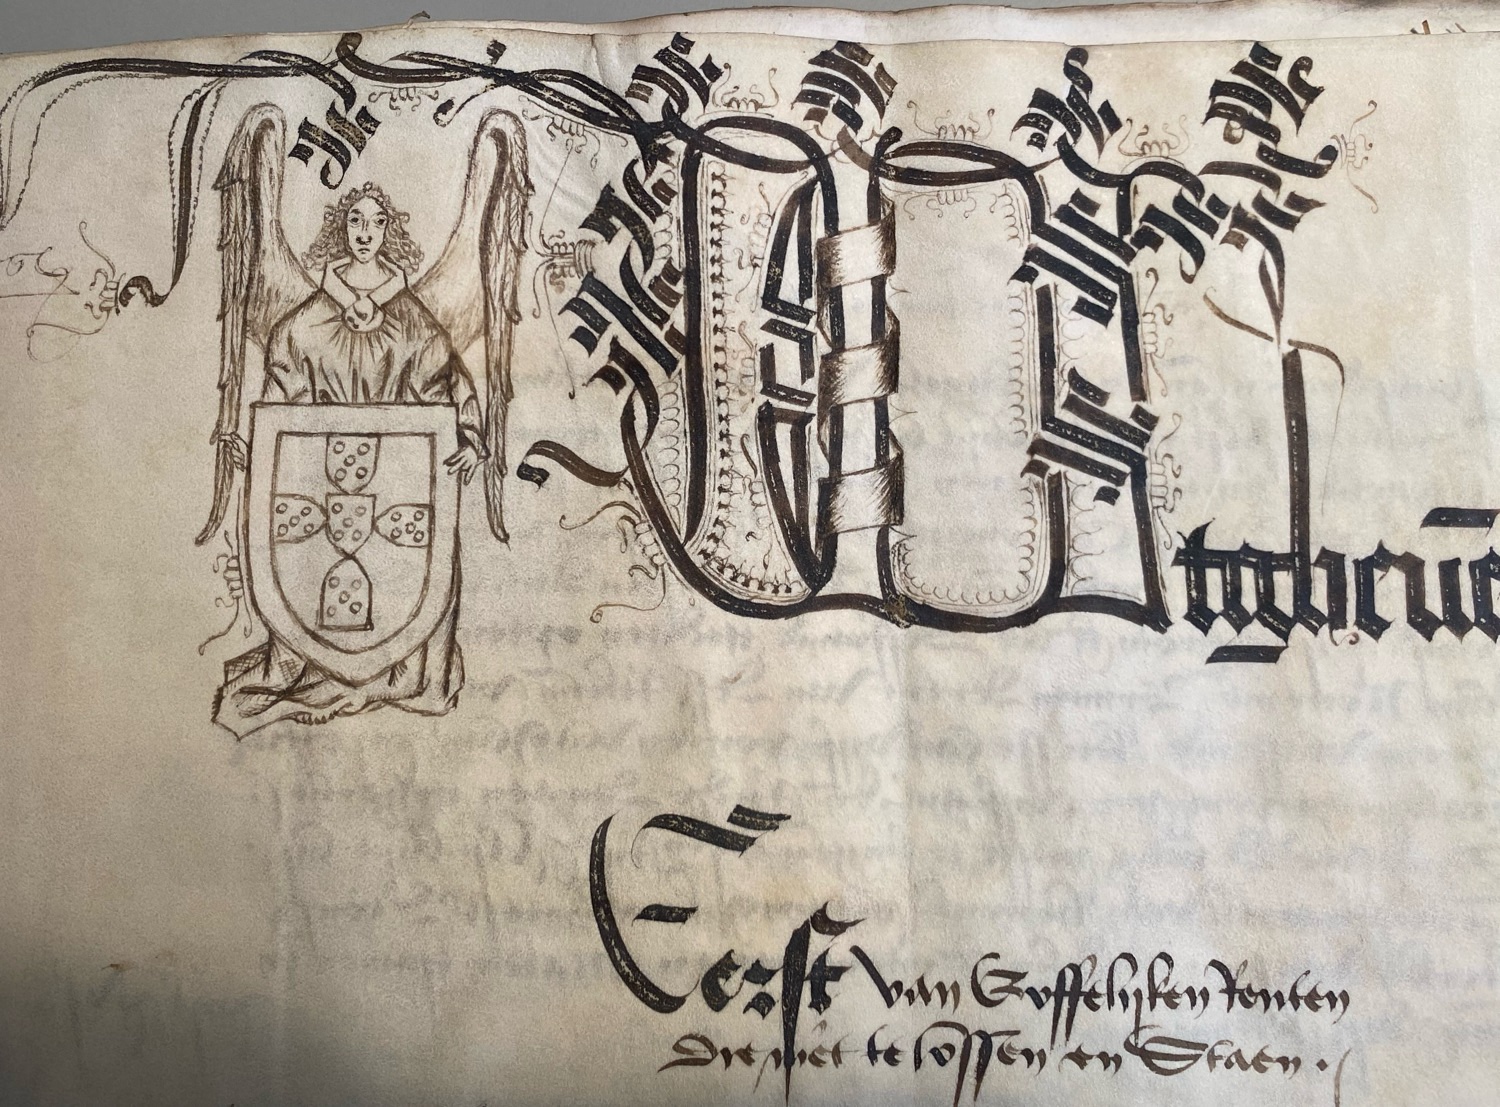 Utgheuē
Eerst van Erffelijken Renten
die niet te lossen en Staen.